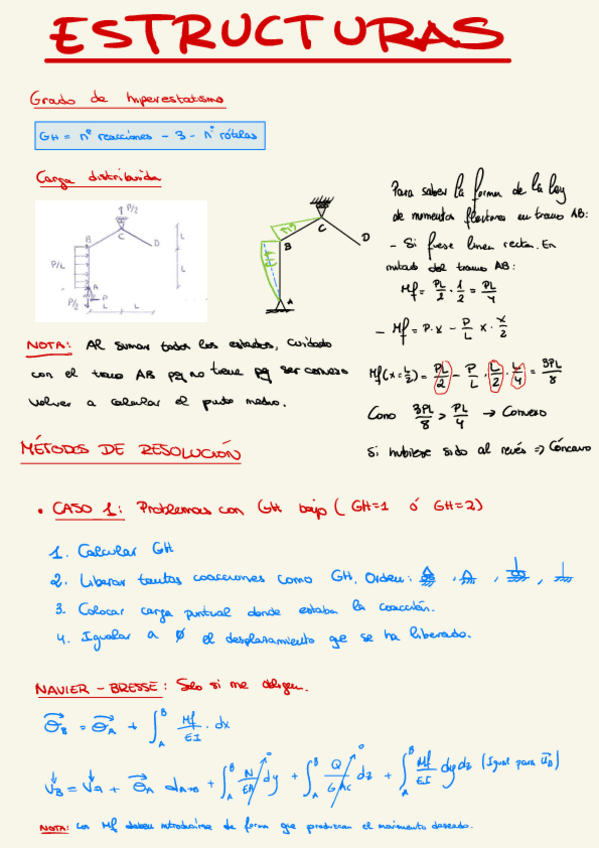 ESTRUCTURAS
Grado de hiperestatismo
GH = nº reacciones - 3 - nº rótulas
Carga distribuida
P/2
B
C
D
L
L
P/L
A
P/2
P
L
L
C
D
B
A
Para saber la forma de la ley
de momentos flectores en tramo AB:
- Si fuese linea recta. En
mitad del tramo AB:
Mf = PL/2 · 1/2 = PL/4
- Mf = P·x - P/L x · x/2
Mf(x=L/2) = PL/2 - P/L · L/2 · L/4 = 3PL/8
Como 3PL/8 > PL/4 → Convexo
Si hubiese sido al revés => Cóncavo
NOTA: Al sumar todos los estados, cuidado
con el tramo AB pq no tiene pq ser convexo
volver a calcular el punto medio.
MÉTODOS DE RESOLUCIÓN
• CASO 1: Problemas con GH bajo (GH=1 ó GH=2)
1. Calcular GH
2. Liberar tantas coacciones como GH. Orden: , , ,
3. Colocar carga puntual donde estaba la coacción.
4. Igualar a 0 el desplazamiento que se ha liberado.
NAVIER - BRESSE: Solo si me obligan.
θB = θA + ∫AB Mf/EI · dx
VB = VA + θA dA→B + ∫AB N/EA dy + ∫AB Q/GAc dz + ∫AB Mf/EI dy dz (Igual para uB)
NOTA: Los Mf deben introducirse de forma que produzcan el movimiento deseado.